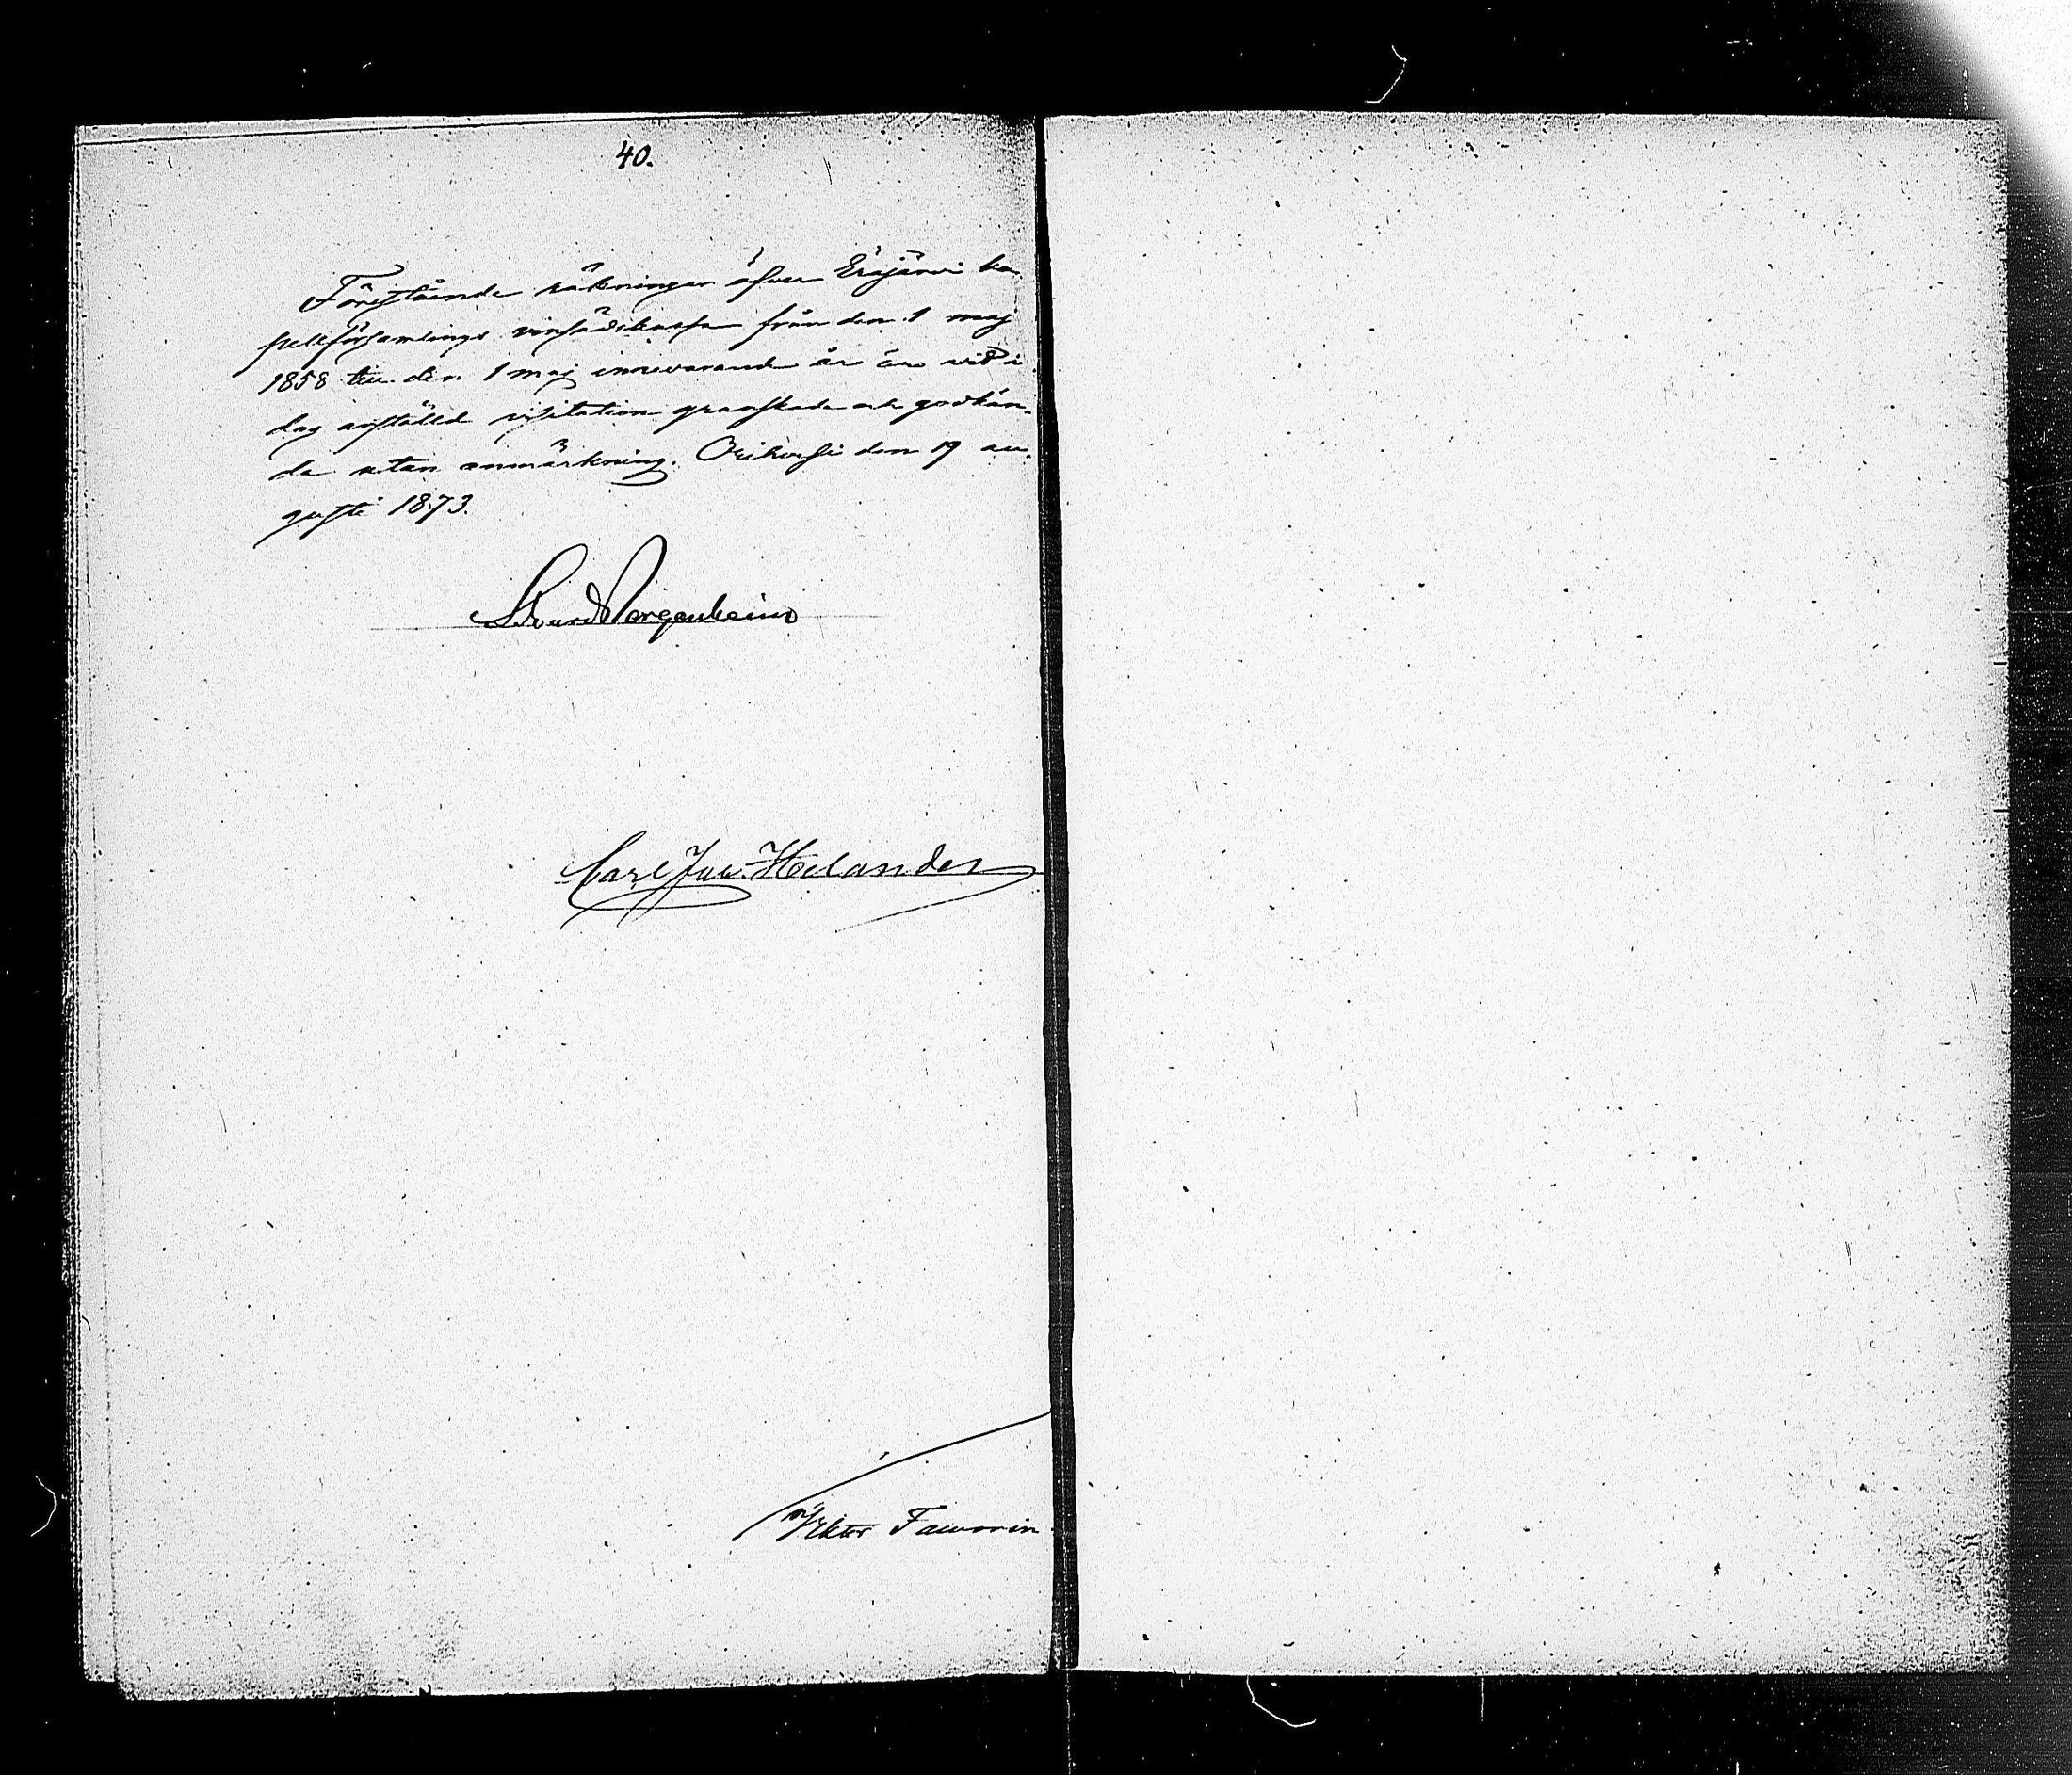 40.
Förestående räkningar öfver Eräjärvi ka-
pellförsamlings vinsädskassa från den 1 maj
1858 till den 1 maj innevarande år äro vid i
dag anställd visitation granskade och godkän-
da utan anmärkning. Orihvesi den 19 au-
gusti 1873.
Carl Jul. Helander
Viktor Faworin.